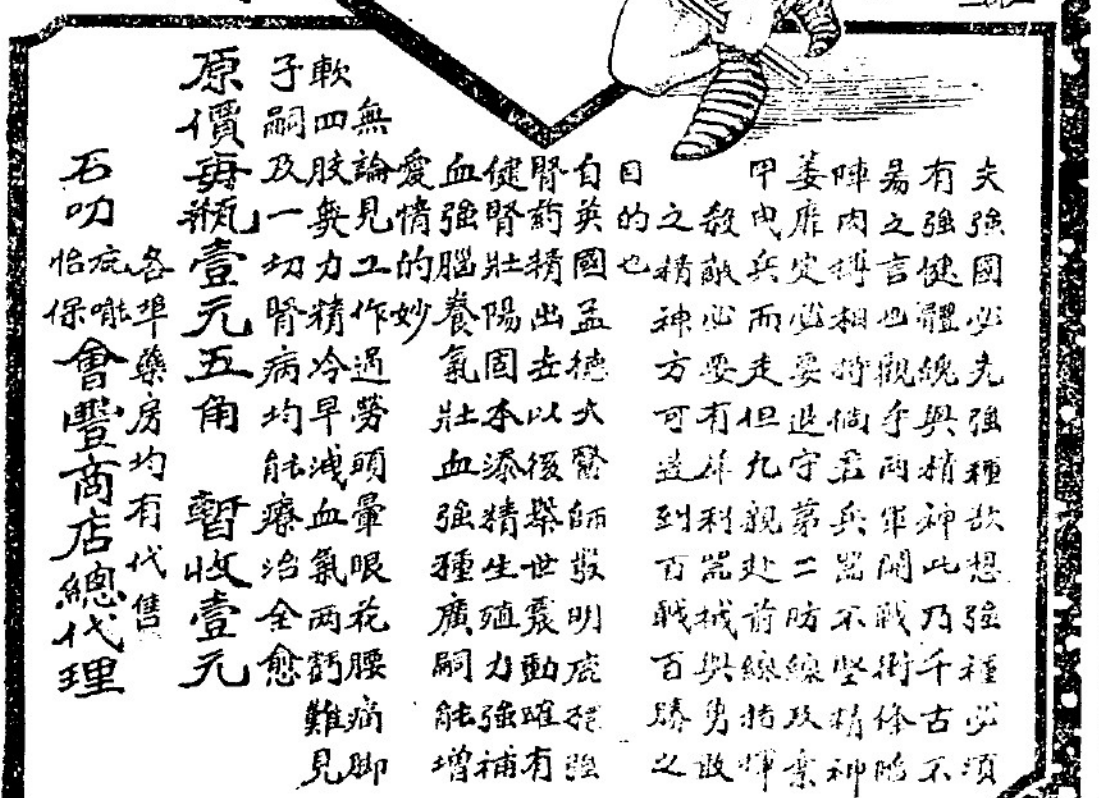 夫強國必先強種欲想強種必須
有強健體魄與精神此乃千古不
昜之言也觀乎両軍開戰衝鋒陷
陣肉搏相持倘若兵器不堅精神
萎靡定必要退守第二防線及棄
甲曳兵而走但凡親赴前線指揮
殺敵必要有犀利器械與勇敢
之精神方可造到百戰百勝之
目的也
自英國孟德大醫師發明鹿強
腎葯精出去以後舉世震動確有
健腎壯陽固本添精生殖力強補
血強腦養氣壯血強種廣嗣能增
愛情的妙
無論見工作過勞頭暈眼花腰痛脚
軟四肢無力精冷早洩血氣両虧難見
子嗣及一切腎病均能療治全愈
原價每瓶壹元五角 暫收壹元
各埠藥房均有代售
石叻 庇 怡保 會豐商店總代理